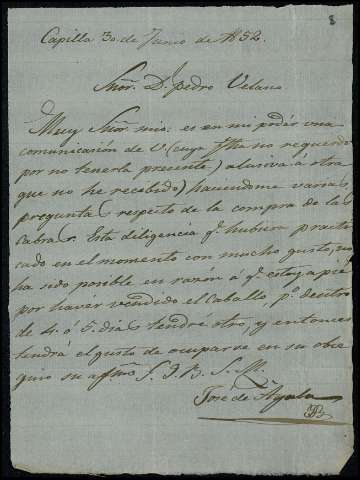 8
Capilla 30 de Junio de 1852.
Señor. D. Pedro Velano
Muy Señor mio: es en mi poder una
comunicasión de V. (cuya fha no requerdo
por no tenerla presente) alusiva á otra
que no he recebido) haciendome varias
preguntas respeto de la compra de las
cabras. Esta diligencia q.e hubiera practi
cado en el momento con mucho gusto, no
ha sido posible en razón á q.e estoy a pié
por haver vendido el caballo, p.o dentro
de 4. ó 5. dias tendre otro, y entonces
tendrá el gusto de ocuparse en su obse
quio su affmo S. Q. B. S. M.
Jose de Ayala